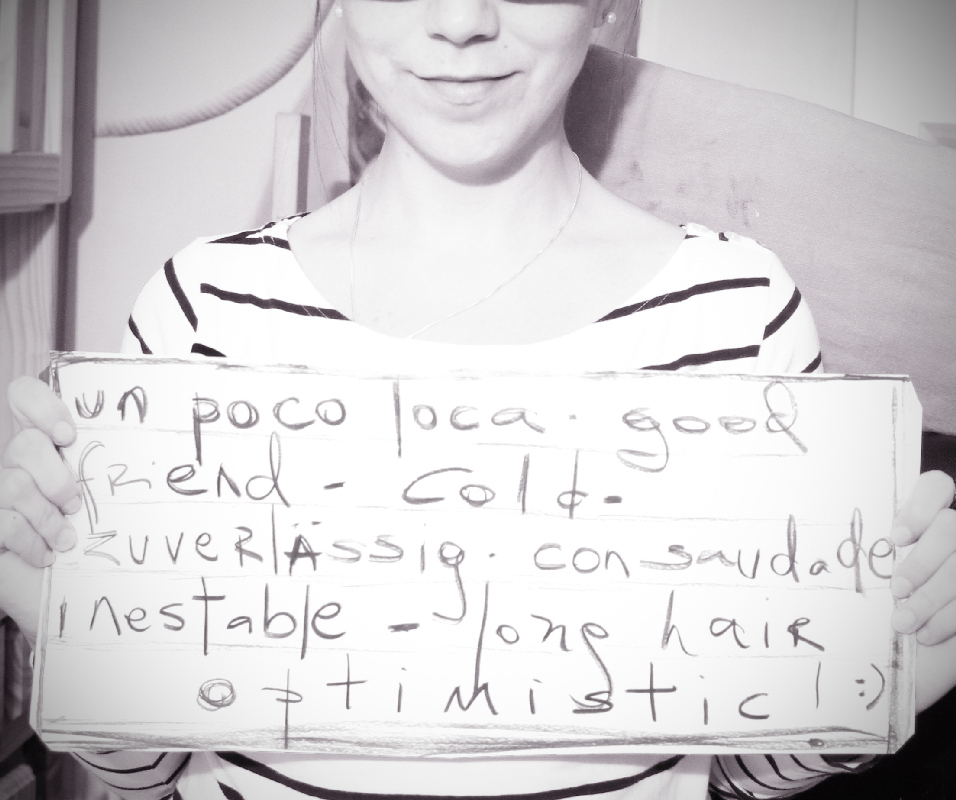 un poco loca. good
friend - cold-
zuverlässig. con saudade
inestable - long hair
optimistic! :)